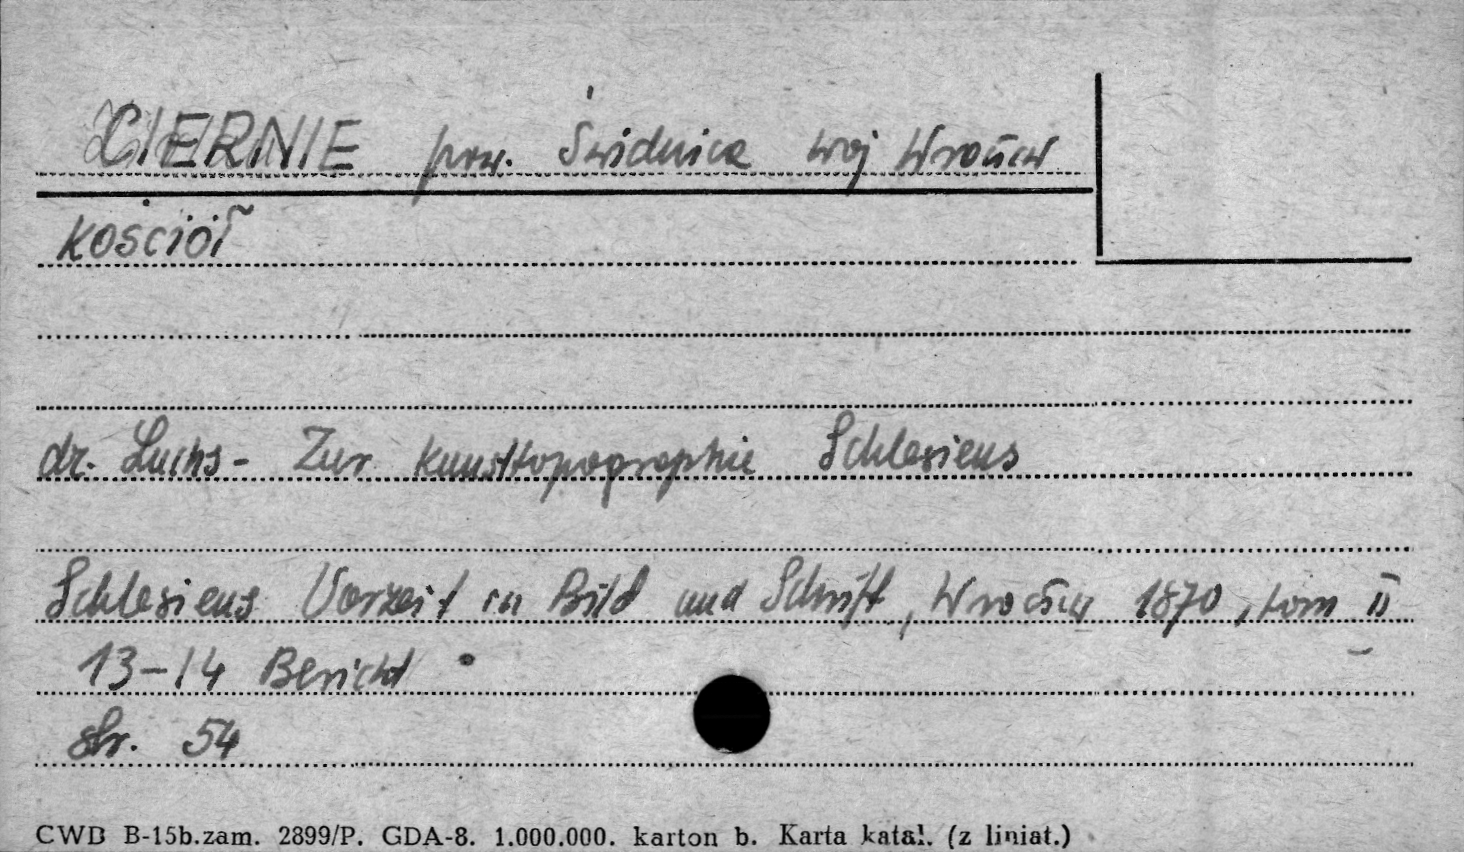 CIERNIE pow. Świdnica woj Wrocław
kościół
dr. Luchs - Zur Kunsttopographie Schlesiens
Schlesiens Vorzeit in Bild und Schrift, Wrocław 1870, tom II
13-14 Bericht
str. 54
CWD B-15b.zam. 2899/P. GDA-8. 1.000.000. karton b. Karta katal. (z liniat.)